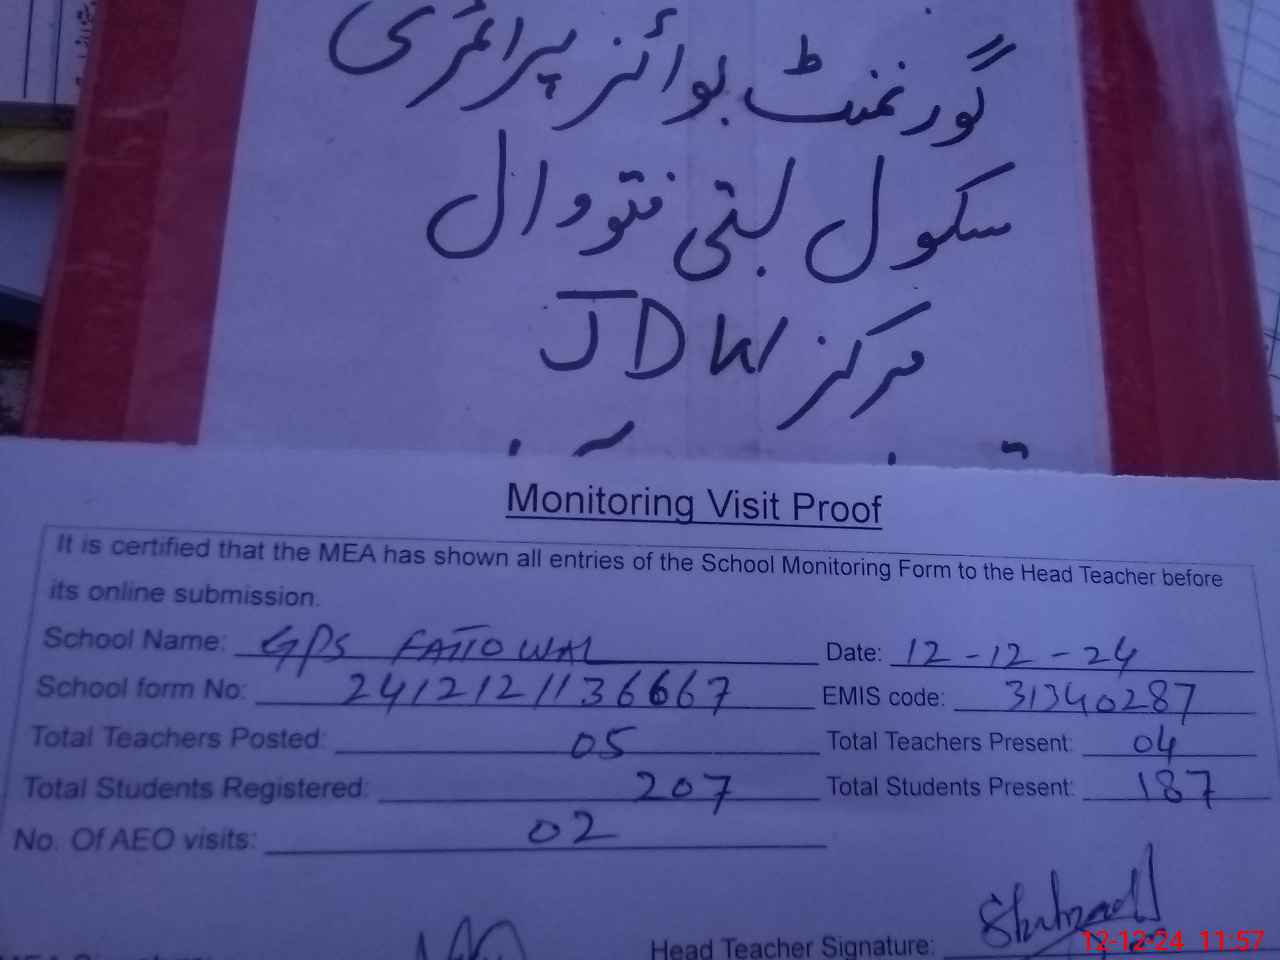 گورنمنٹ بوائز پرائمری
سکول بستی فتووال
مرکز JDW
Monitoring Visit Proof
It is certified that the MEA has shown all entries of the School Monitoring Form to the Head Teacher before
its online submission.
School Name: GPS FATTOWAL Date: 12-12-24
School form No: 2412121136667 EMIS code: 31340287
Total Teachers Posted: 05 Total Teachers Present: 04
Total Students Registered: 207 Total Students Present: 187
No. Of AEO visits: 02
Head Teacher Signature: Shahzad
12-12-24 11:57